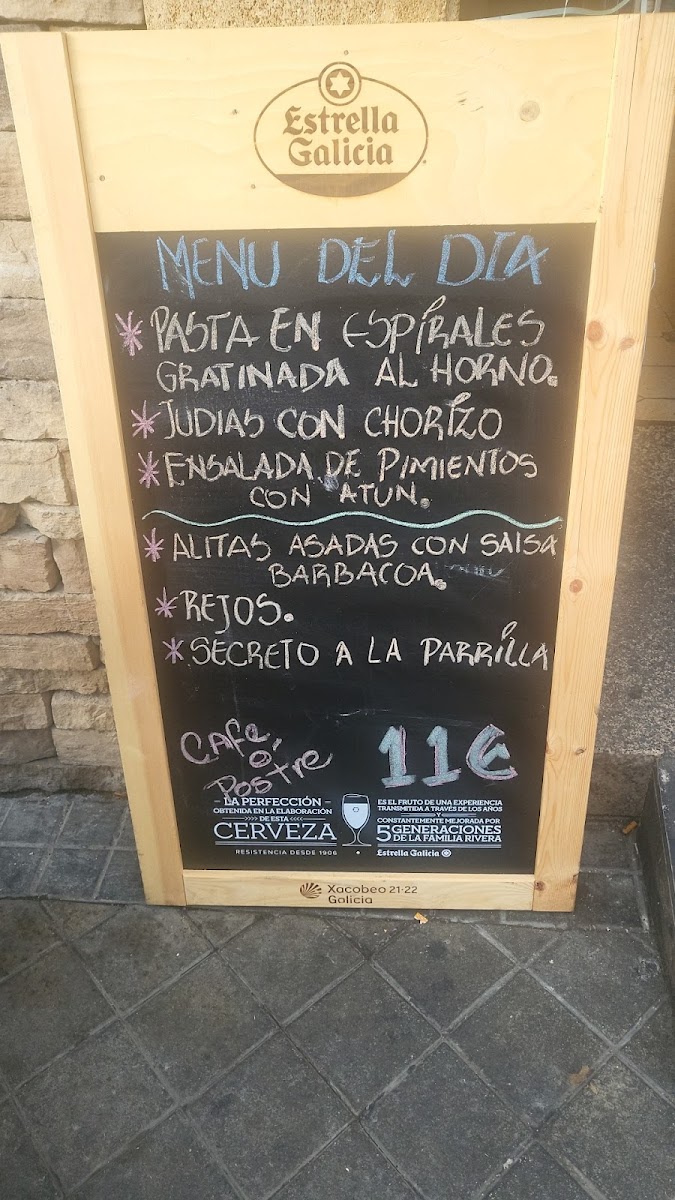 Estrella
Galicia
MENU DEL DIA
* PASTA EN ESPÍRALES
GRATINADA AL HORNO.
* JUDIAS CON CHORIZO
* ENSALADA DE PIMIENTOS
CON ATUN.
* ALITAS ASADAS CON SALSA
BARBACOA.
* REJOS.
* SECRETO A LA PARRILLA
Cafe
o
Postre
11€
LA PERFECCIÓN
OBTENIDA EN LA ELABORACIÓN
DE ESTA
CERVEZA
RESISTENCIA DESDE 1906
ES EL FRUTO DE UNA EXPERIENCIA
TRANSMITIDA A TRAVÉS DE LOS AÑOS
Y
CONSTANTEMENTE MEJORADA POR
5 GENERACIONES
DE LA FAMILIA RIVERA
Estrella Galicia
Xacobeo 21·22
Galicia